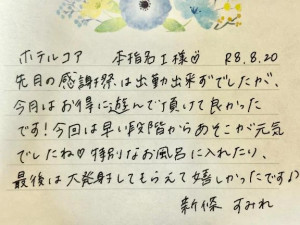 ホテルコア　本指名I様♡　R8.8.20
先月の感謝祭は出勤出来ずでしたが、
今月はお得に遊んで頂けて良かった
です！今回は早い段階からあそこが元気
でしたね♡特別なお風呂に入れたり、
最後は大発射してもらえて嬉しかったです♪
新條　すみれ